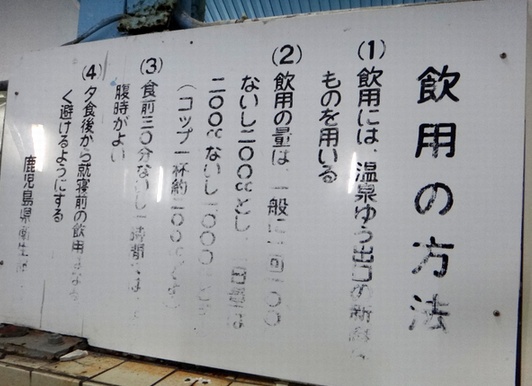 飲用の方法
(1) 飲用には、温泉ゆう出口の新鮮な
ものを用いる
(2) 飲用の量は、一般に一回一〇〇
ないし二〇〇ccとし、一日量は
二〇〇ccないし一、〇〇〇
(コップ一杯約二〇〇ccです)
(3) 食前三〇分ないし一時間
腹時がよい
(4) 夕食後から就寝前の飲用はなるべ
く避けるようにする
鹿児島県衛生部